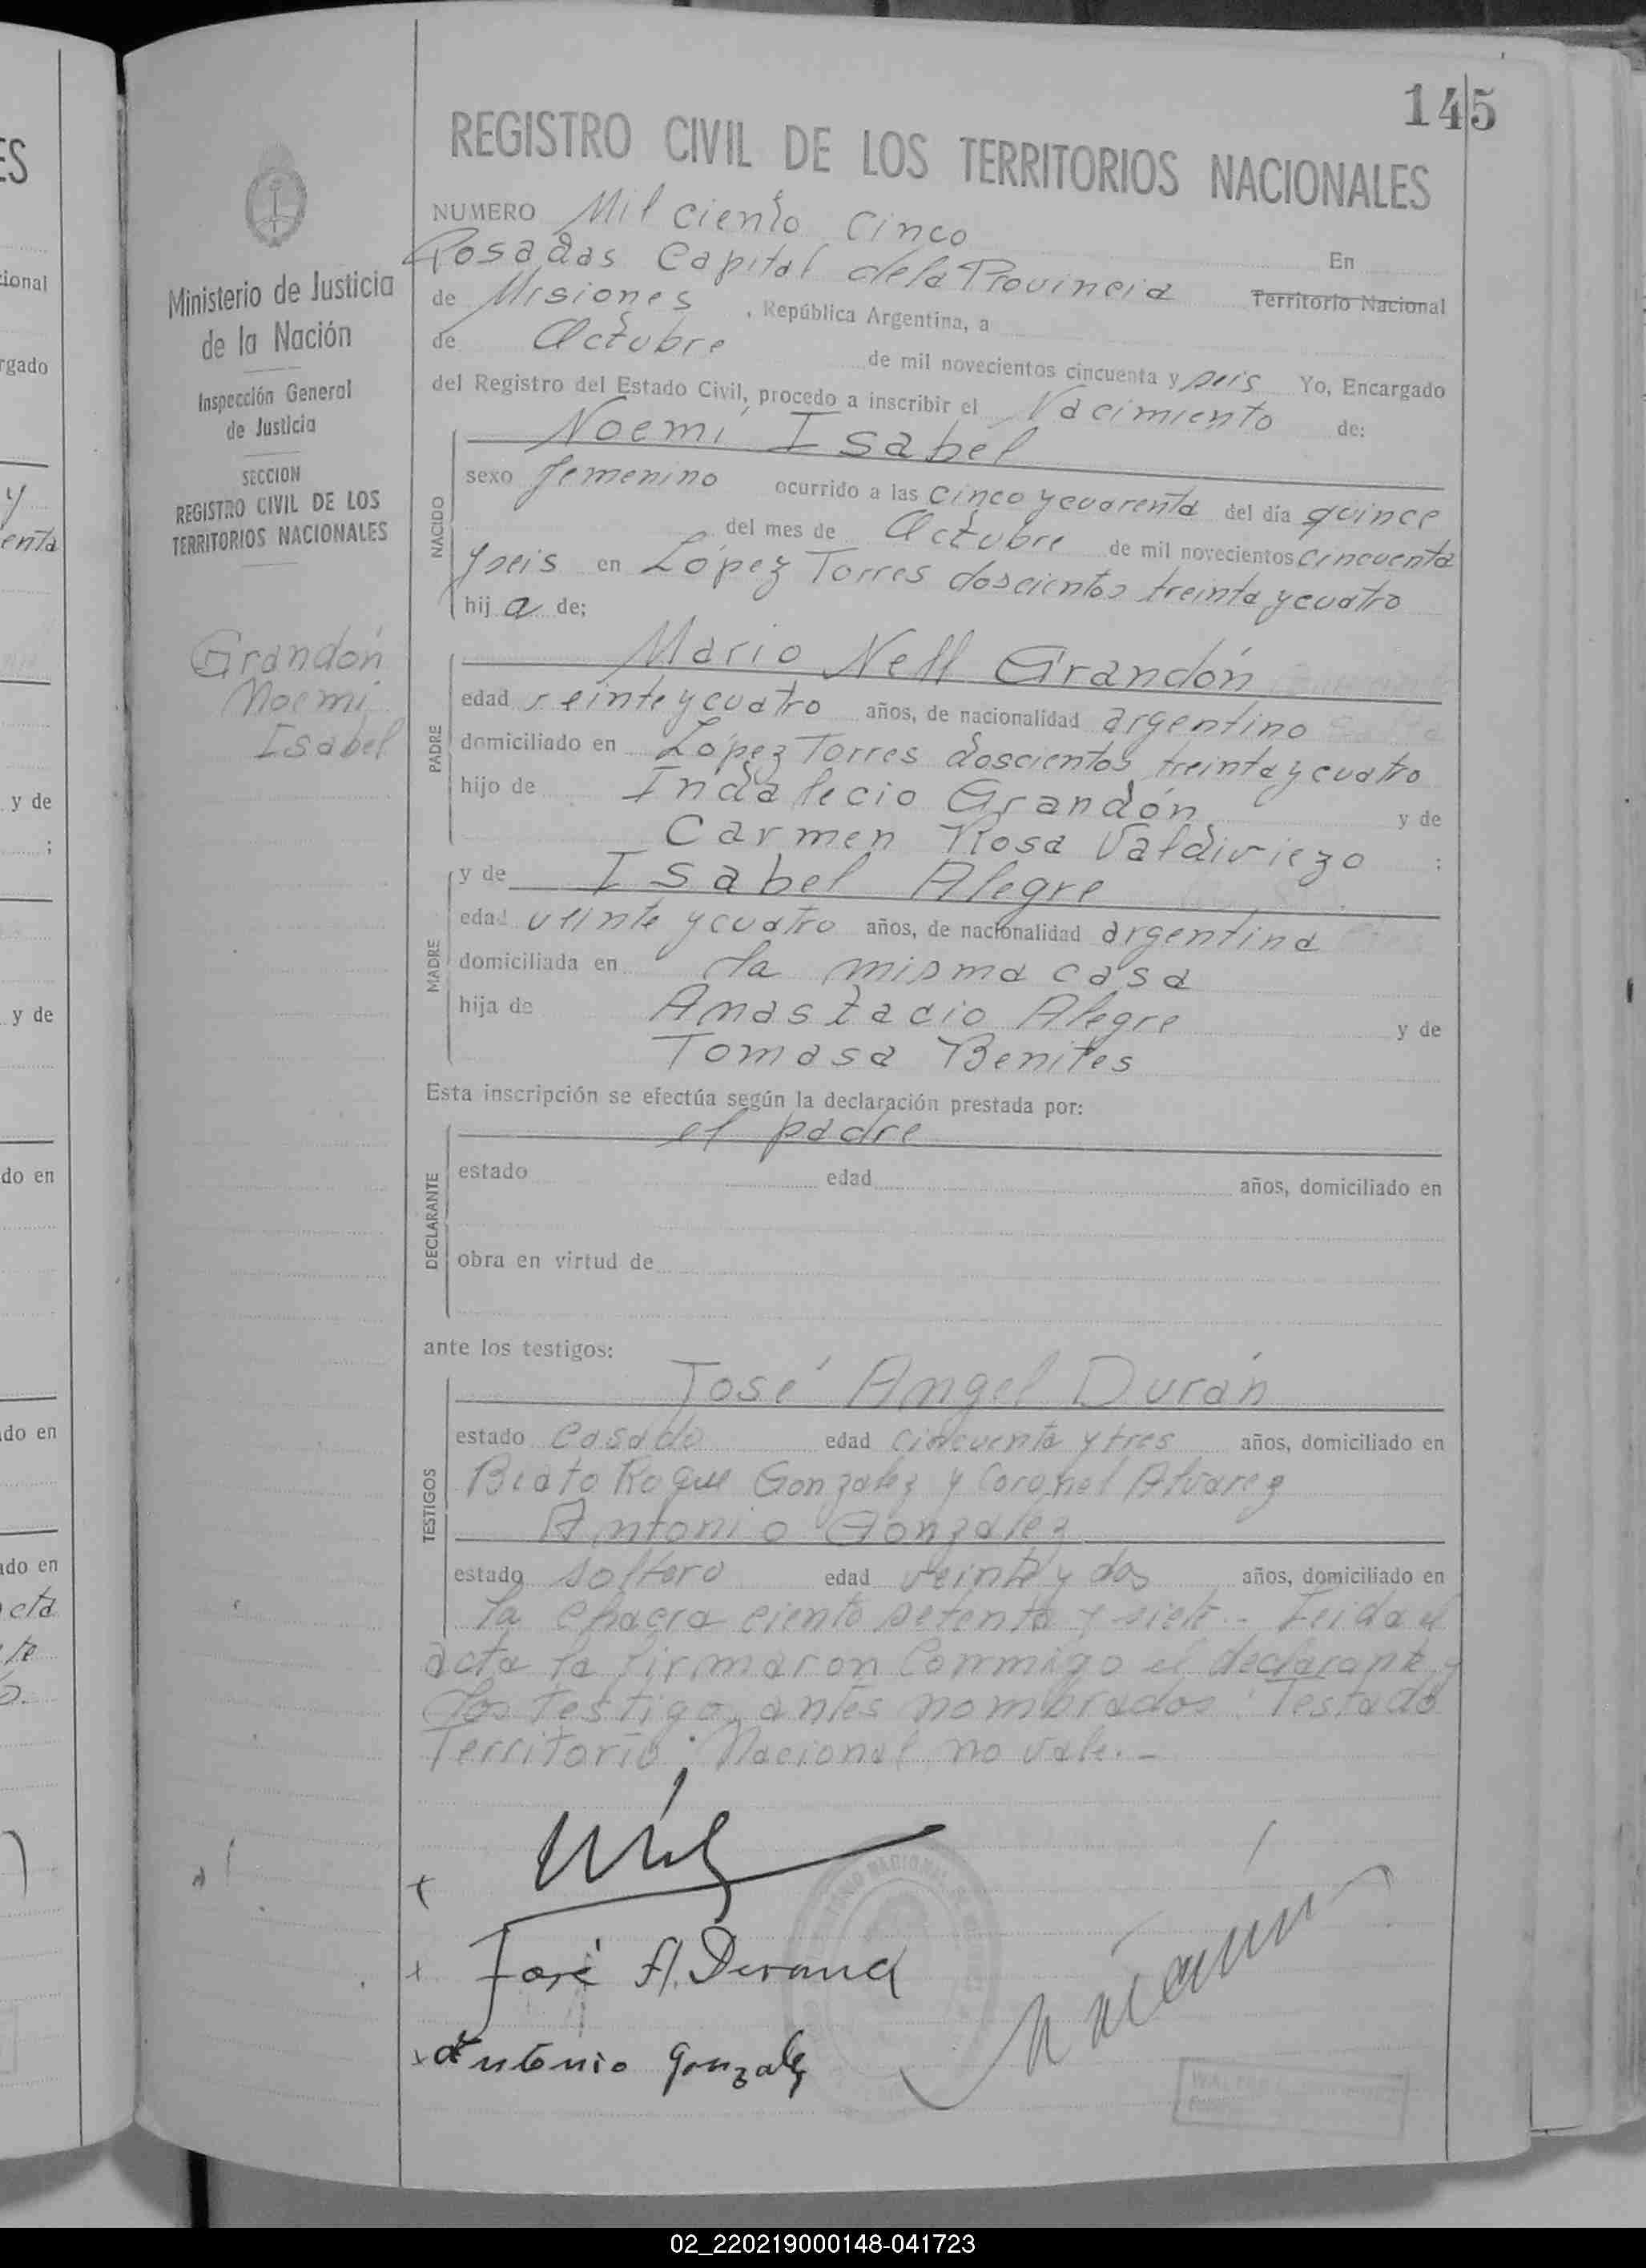 145
REGISTRO CIVIL DE LOS TERRITORIOS NACIONALES
Ministerio de Justicia
de la Nación
Inspección General
de Justicia
SECCION
REGISTRO CIVIL DE LOS
TERRITORIOS NACIONALES
Grandón
Noemi
Isabel
NUMERO Mil ciento cinco
Posadas Capital de la Provincia En
de Misiones , República Argentina, a Territorio Nacional
de Octubre de mil novecientos cincuenta y seis Yo, Encargado
del Registro del Estado Civil, procedo a inscribir el Nacimiento de:
NACIDO
Noemi Isabel
sexo femenino ocurrido a las cinco y cuarenta del día quince
del mes de Octubre de mil novecientos cincuenta
y seis en López Torres doscientos treinta y cuatro
hij a de:
PADRE
Mario Nell Grandón
edad veinte y cuatro años, de nacionalidad argentino
domiciliado en López Torres doscientos treinta y cuatro
hijo de Indalecio Grandón y de
Carmen Rosa Valdiviezo :
MADRE
y de Isabel Alegre
edad veinte y cuatro años, de nacionalidad argentina
domiciliada en la misma casa
hija de Anastacio Alegre y de
Tomasa Benites
Esta inscripción se efectúa según la declaración prestada por:
DECLARANTE
el padre
estado edad años, domiciliado en
obra en virtud de
ante los testigos:
TESTIGOS
José Angel Durán
estado casado edad cincuenta y tres años, domiciliado en
Beato Roque Gonzalez y Coronel Alvarez
Antonio Gonzalez
estado soltero edad veinte y dos años, domiciliado en
la chacra ciento setenta y siete.- Leida el
acta la firmaron conmigo el declarante y
los testigos antes nombrados: Testado
Territorio Nacional no vale.-
José A. Durand
Antonio Gonzalez
ES
cional
rgado
y
enta
y de
;
y de
do en
do en
ado en
acta
te
02_220219000148-041723